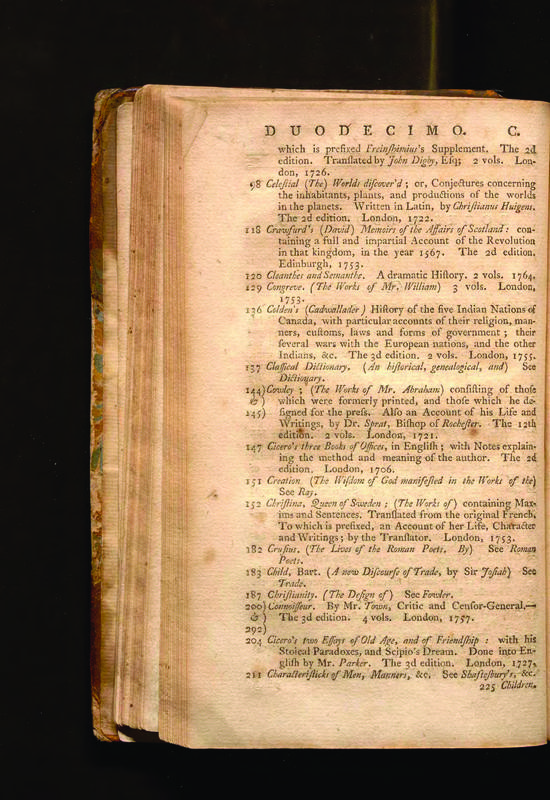 DUODECIMO. C.
which is prefixed Freinſhimius's Supplement. The 2d
edition. Tranſlated by John Digby, Eſq; 2 vols. Lon-
don, 1726.
98 Celeſtial (The) Worlds diſcover'd; or, Conjectures concerning
the inhabitants, plants, and productions of the worlds
in the planets. Written in Latin, by Chriſtianus Huigens.
The 2d edition. London, 1722.
118 Crawfurd's (David) Memoirs of the Affairs of Scotland: con-
taining a full and impartial Account of the Revolution
in that kingdom, in the year 1567. The 2d edition.
Edinburgh, 1753.
120 Cleanthes and Semanthe. A dramatic Hiſtory. 2 vols. 1764.
129 Congreve. (The Works of Mr. William) 3 vols. London,
1753.
136 Colden's (Cadwallader) Hiſtory of the five Indian Nations of
Canada, with particular accounts of their religion, man-
ners, cuſtoms, laws and forms of government; their
ſeveral wars with the European nations, and the other
Indians, &c. The 3d edition. 2 vols. London, 1755.
137 Claſſical Dictionary. (An hiſtorical, genealogical, and) See
Dictionary.
144) Cowley; (The Works of Mr. Abraham) conſiſting of thoſe
& ) which were formerly printed, and thoſe which he de-
145) ſigned for the preſs. Alſo an Account of his Life and
Writings, by Dr. Sprat, Biſhop of Rocheſter. The 12th
edition. 2 vols. London, 1721.
147 Cicero's three Books of Offices, in Engliſh; with Notes explain-
ing the method and meaning of the author. The 2d
edition. London, 1706.
151 Creation (The Wiſdom of God manifeſted in the Works of the)
See Ray.
152 Chriſtina, Queen of Sweden; (The Works of) containing Max-
ims and Sentences. Tranſlated from the original French.
To which is prefixed, an Account of her Life, Character
and Writings; by the Tranſlator. London, 1753.
182 Cruſius. (The Lives of the Roman Poets, By) See Roman
Poets.
183 Child, Bart. (A new Diſcourſe of Trade, by Sir Joſiah) See
Trade.
187 Chriſtianity. (The Deſign of) See Fowler.
200) Connoiſſeur. By Mr. Town, Critic and Cenſor-General.—
& ) The 3d edition. 4 vols. London, 1757.
292)
204 Cicero's two Eſſays of Old Age, and of Friendſhip: with his
Stoical Paradoxes, and Scipio's Dream. Done into En-
gliſh by Mr. Parker. The 3d edition. London, 1727.
211 Characteriſticks of Men, Manners, &c. See Shafteſbury's, &c.
225 Children.